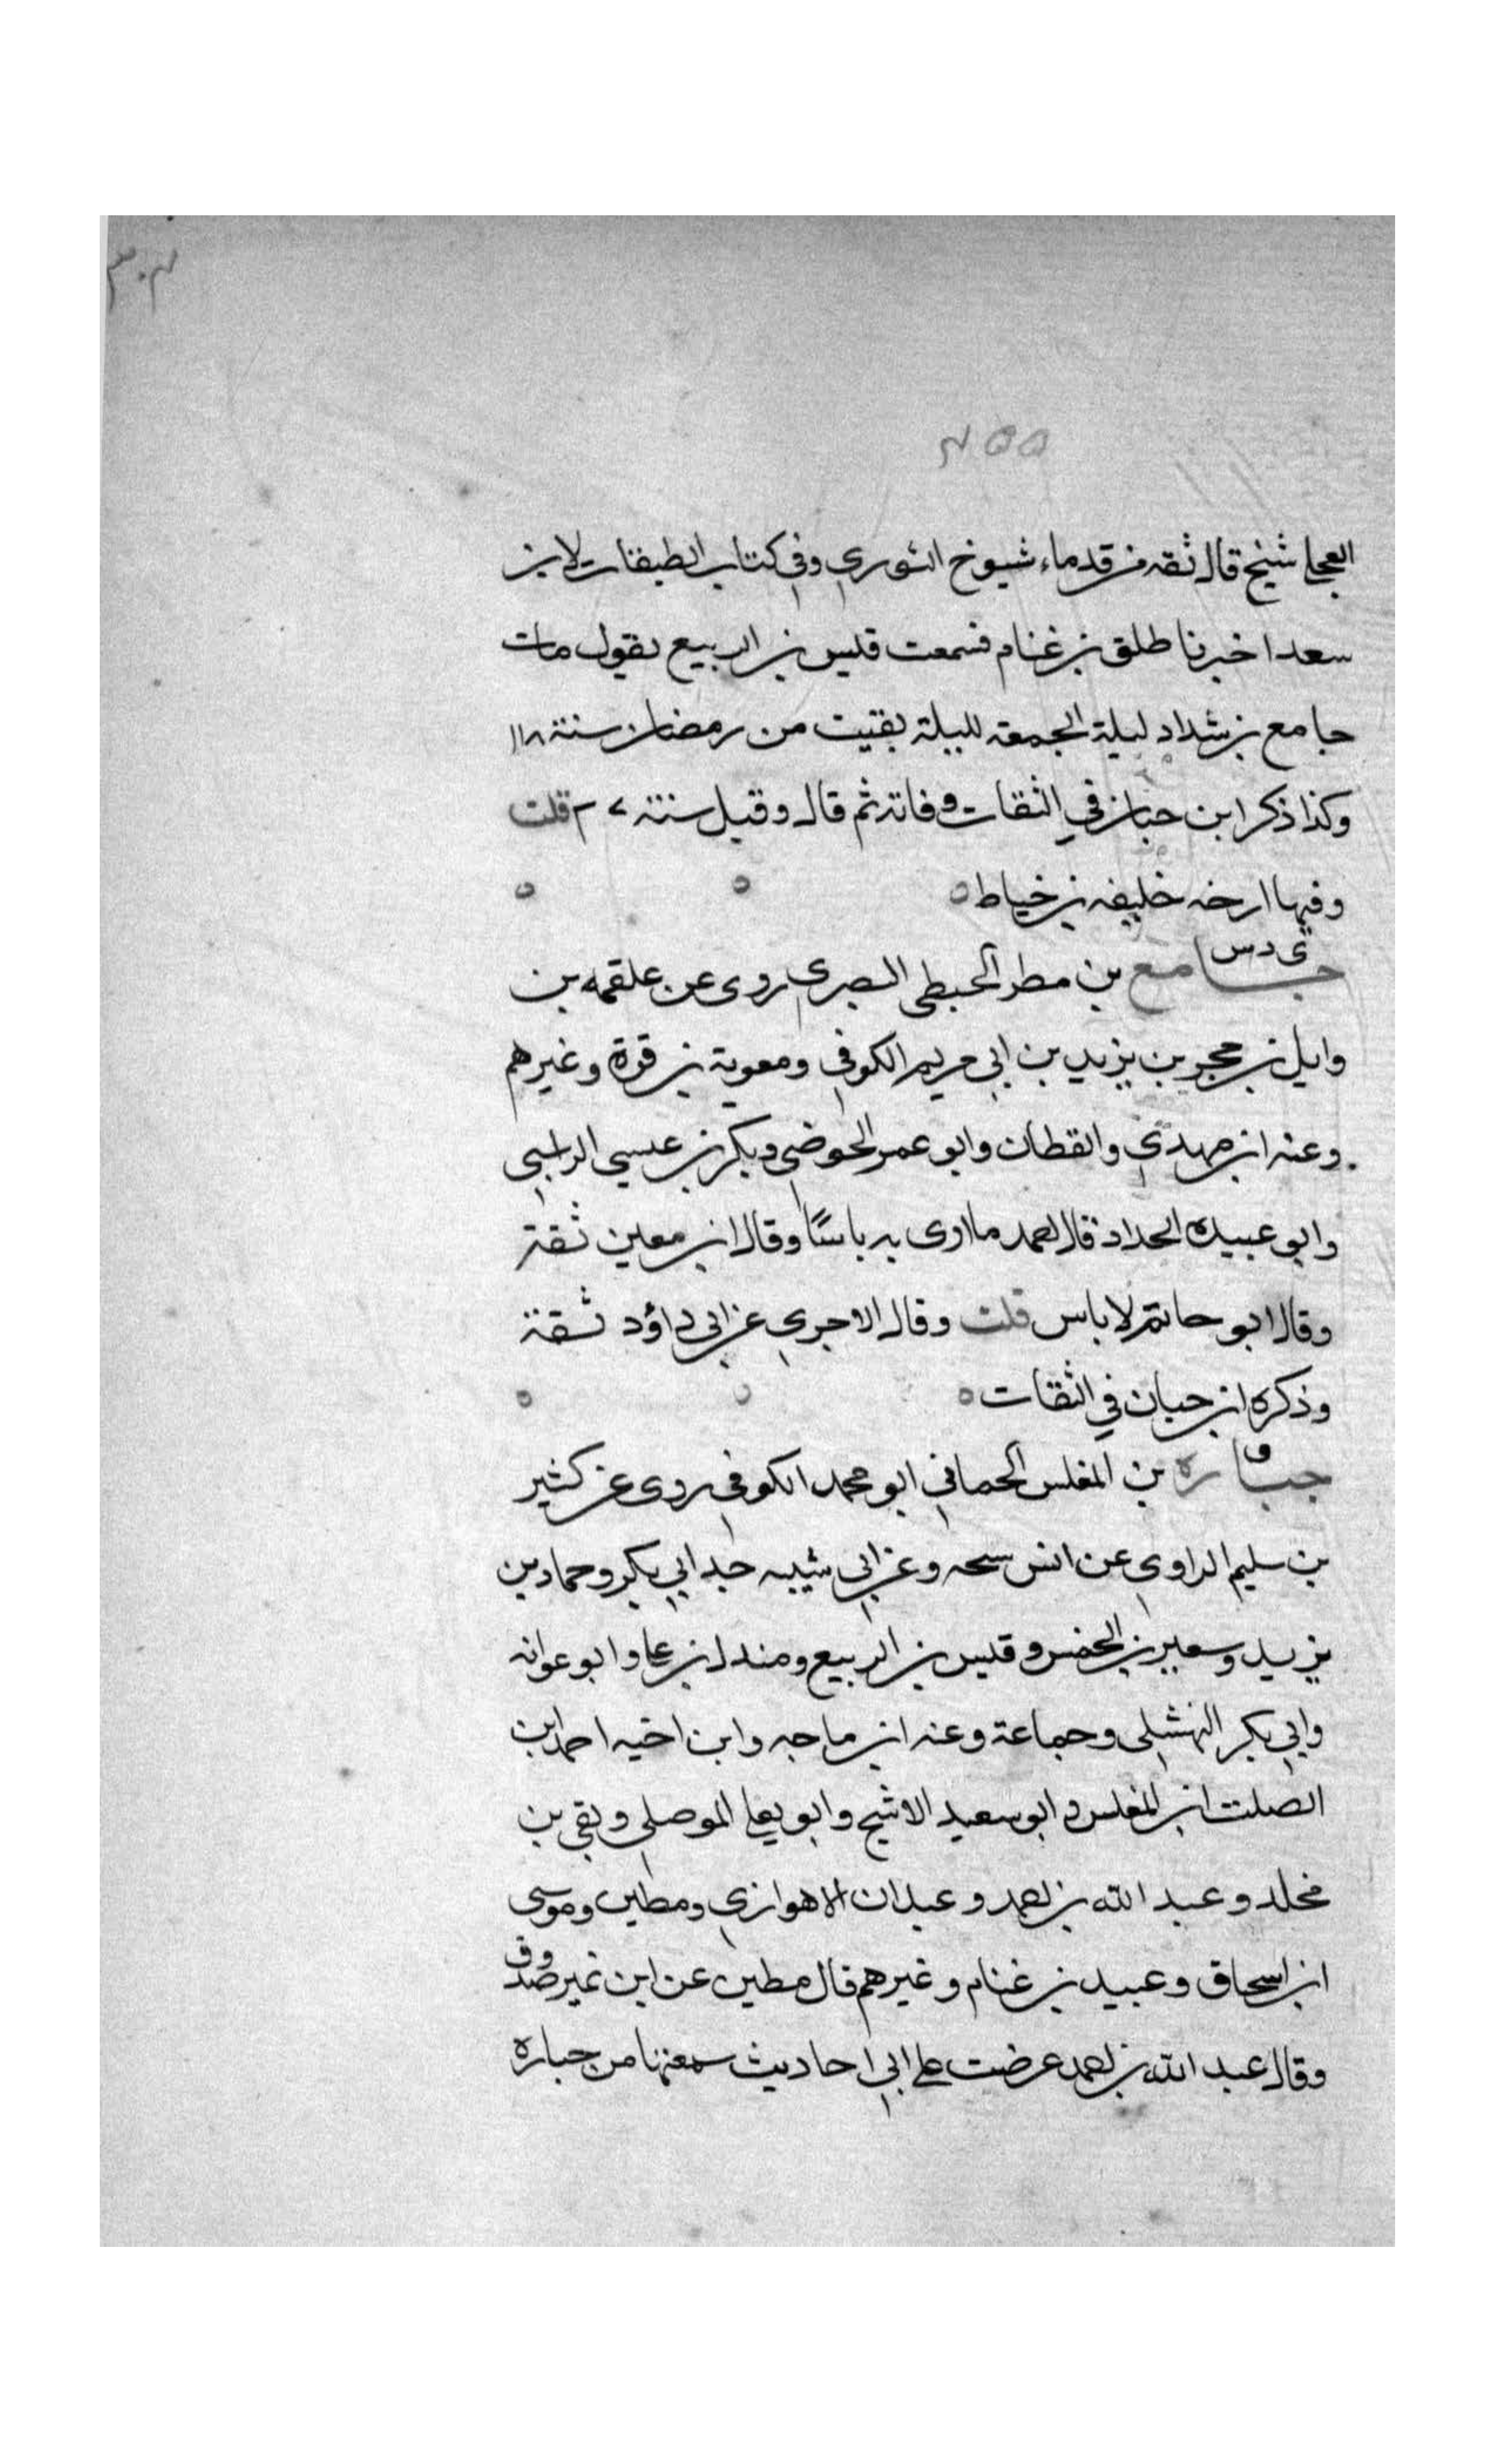 ٣٠٣
٢٥٥
العجلي شيخ قال ثقة من قدماء شيوخ الثوري وفي كتاب الطبقات لابن
سعد اخبرنا طلق بن غنام فسمعت قيس بن الربيع يقول مات
جامع بن شداد ليلة الجمعة لليلة بقيت من رمضان سنة ١١٨
وكذا ذكر ابن حبان في الثقات وفاته ثم قال وقيل سنة ٢٧ قلت
وفيها ارخه خليفه بن خياط ه ه ه
ي د س
جامع بن مطر الحبطي البصري روى عن علقمه بن
وايل بن حجر بن يزيد بن ابي مريم الكوفي ومعوية بن قرة وغيرهم
وعنه ابن مهدي والقطان وابو عمر الحوضي وبكر بن عيسي الراسبي
وابو عبيده الحداد قال احمد ما ارى به باسًا وقال ابن معين ثقة
وقال ابو حاتم لا باس قلت وقال الاجري عن ابي داؤد ثقة
وذكره ابن حبان في الثقات ه ه ه
ق
جباره بن المغلس الحماني ابو محمد الكوفي روى عن كثير
بن سليم الراوي عن انس وعن ابي شيبه جد ابي بكر وحماد بن
يزيد وسعير بن الخمس وقيس بن الربيع ومندل بن علي وابو عوانه
وابي بكر النهشلي وجماعة وعنه ابن ماجه وابن اخيه احمد ابن
الصلت ابن المغلس وابو سعيد الاشج وابو يعلي الموصلي وبقي بن
مخلد وعبد الله بن احمد وعبدان الاهوازي ومطين وموسى
ابن اسحاق وعبيد بن غنام وغيرهم قال مطين عن ابن نمير صدوق
وقال عبد الله بن احمد عرضت علي ابي احاديث سمعتها من جباره